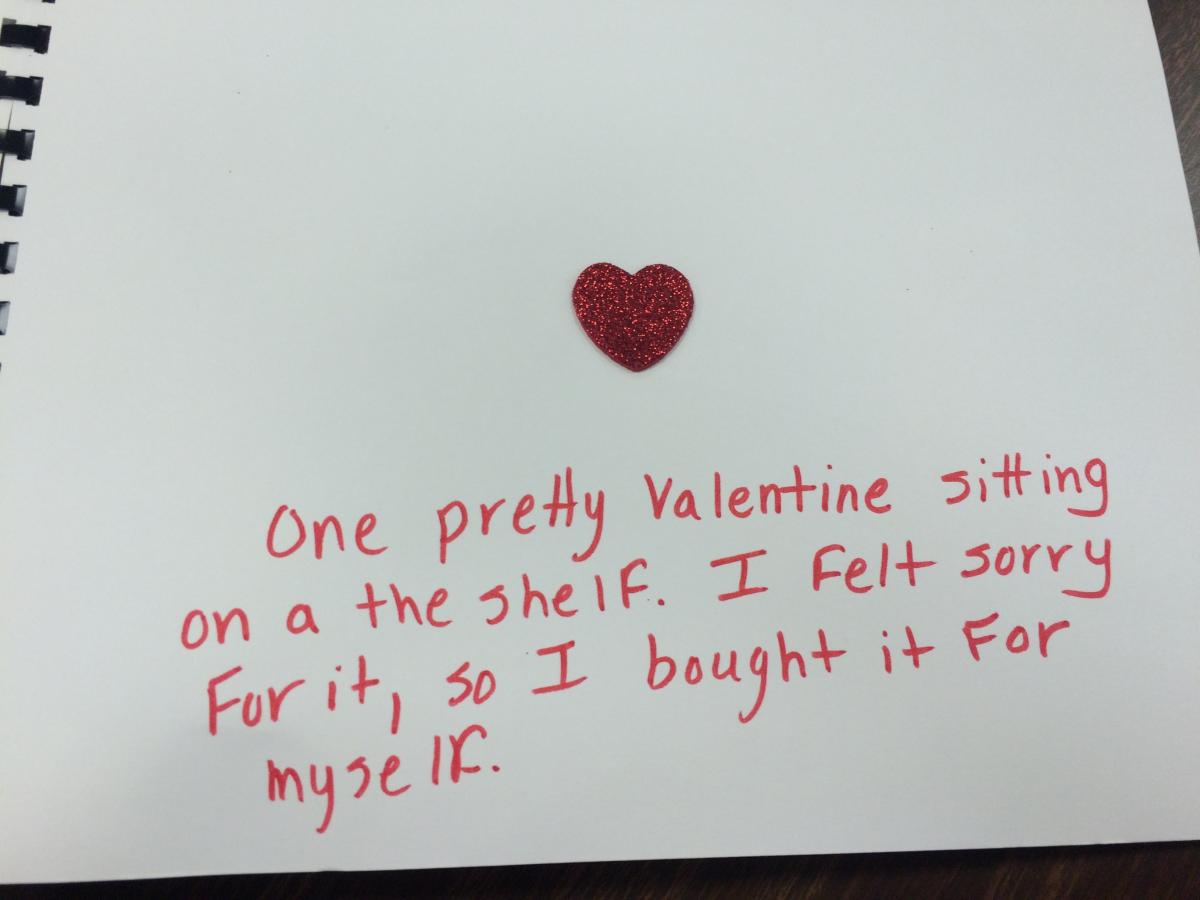 One pretty Valentine sitting
on a the shelf. I Felt sorry
For it, so I bought it For
myself.